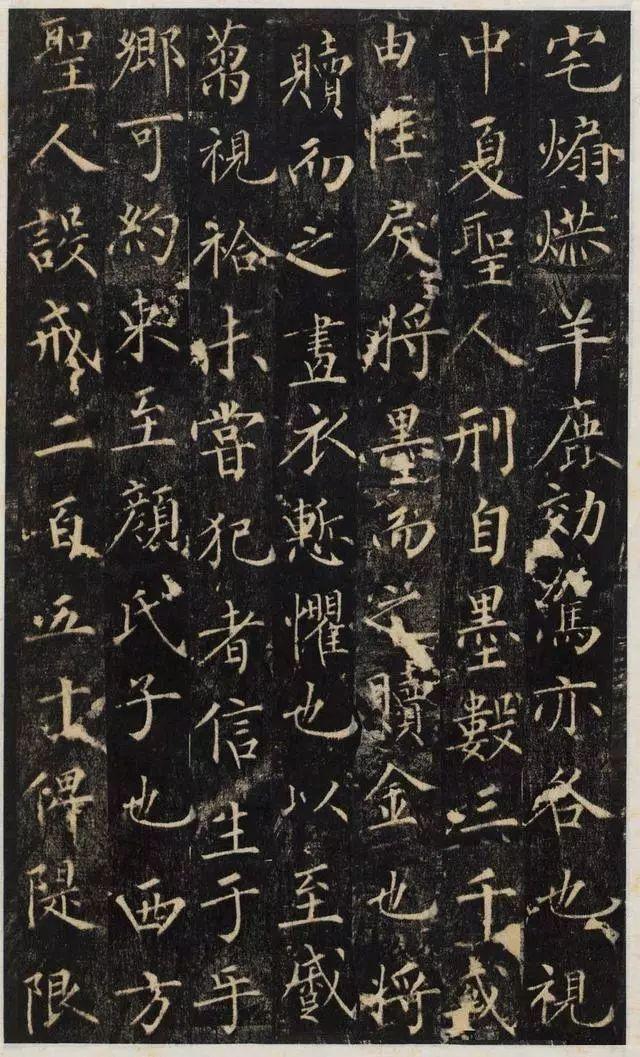 宅煽羊鹿效駕亦各也視
中夏聖人刑自墨數三千或
由性戾將墨而之贖金也將
贖而之畫衣慙懼也以至
視袷未嘗犯者信生于
鄉可約束至顏氏子也西方
聖人設戒二百五十俾隄限